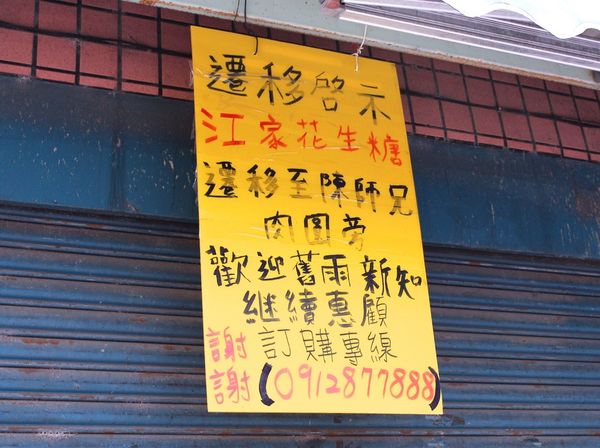 遷移啓示
江家花生糖
遷移至陳師兄
肉圓旁
歡迎舊雨新知
繼續惠顧
謝謝
訂購專線
(0912877888)